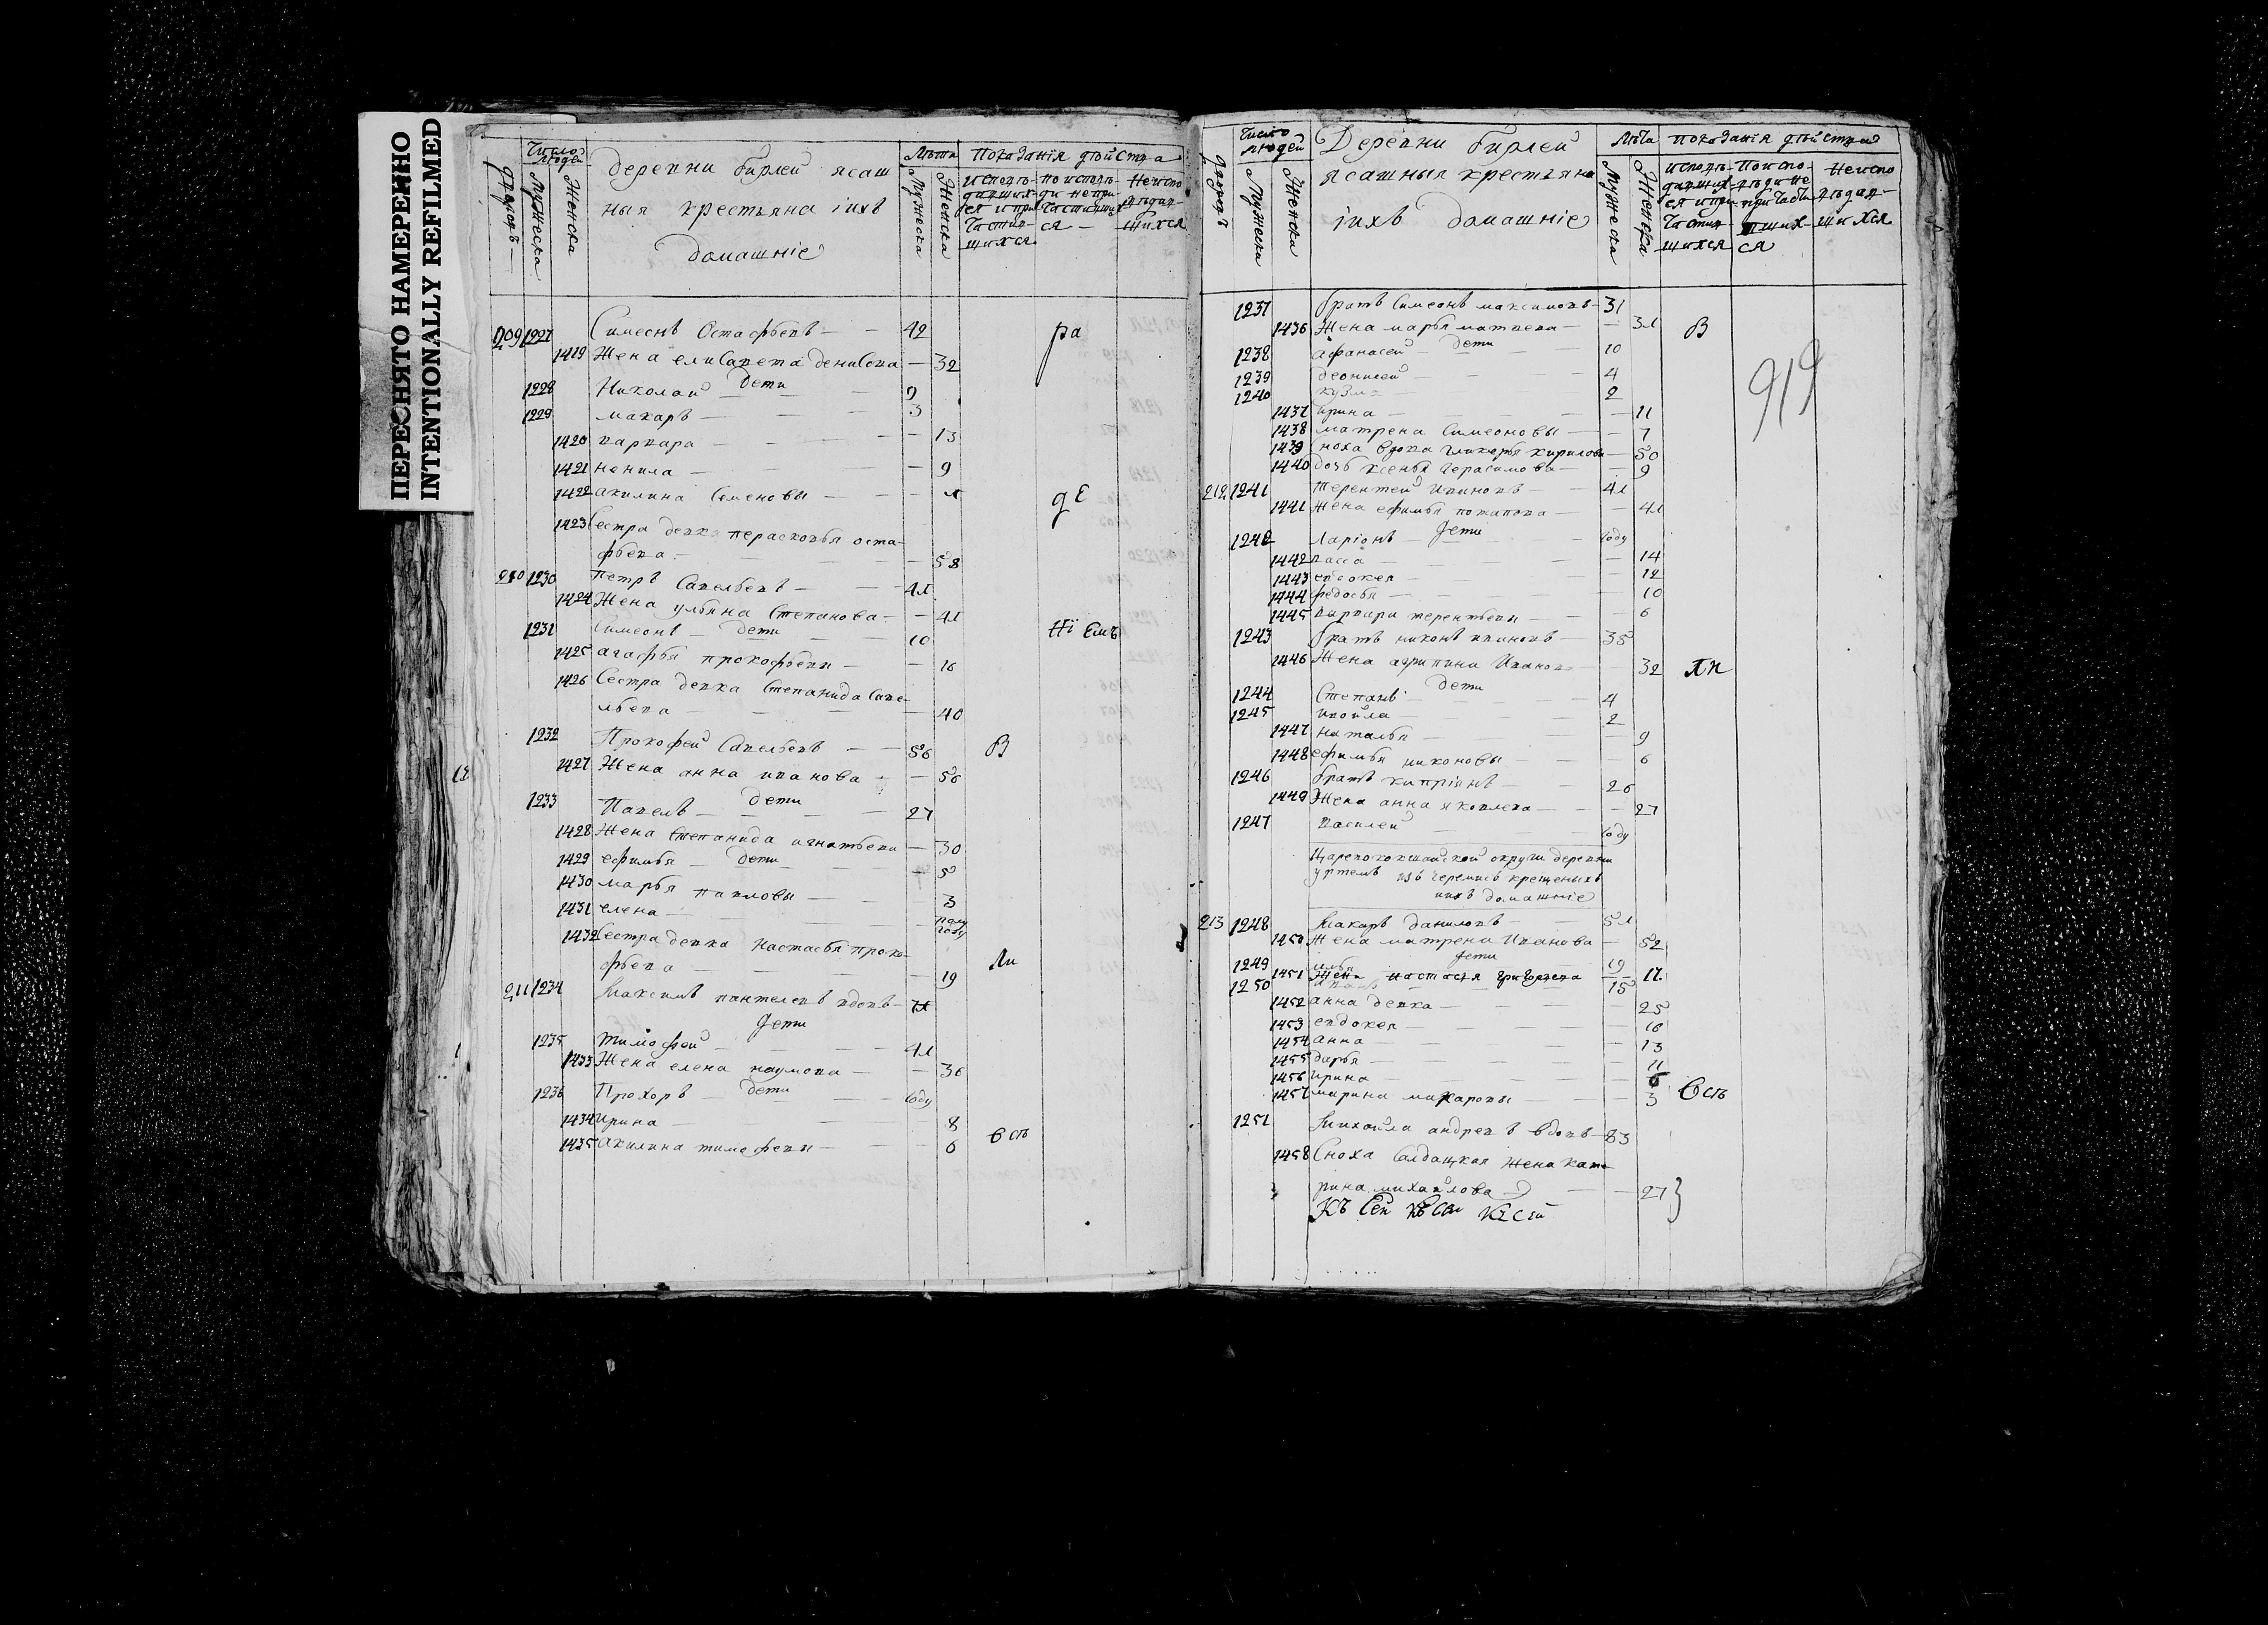 ПЕРЕСНЯТО НАМЕРЕННО
INTENTIONALLY REFILMED
Число людей
дворовъ
Мужеска
Женска
деревни бирлей ясаш
ныя крестьяна iихъ
домашнiе
Лѣта
Мужеска
Женска
Показанiя дѣйства
исповѣ-
давших-
ся и при
частив-
шихся
по исповѣ-
ди непри-
частивших
ся —
Неиспо
ведав-
шихся
209 1227 Симеонъ Остафьевъ — 42
1419 Жена елисавета денисова — 32
дети
1228 Николай — 9
1229 макаръ — 3
1420 варвара — 13
1421 ненила — 9
1422 акилина Семеновы — 1
1423 Сестра девка перасковья оста-
фьева — 58
210 1230 Петръ Савельевъ — 41
1424 Жена ульяна Степанова — 41
дети
1231 Симеонъ — 10
1425 агафья прокофьевы — 16
1426 Сестра девка Степанида Саве-
льева — 40
1232 Прокофей Савельевъ — 56
1427 Жена анна иванова — 56
дети
1233 Павелъ — 27
1428 Жена Степанида игнатьева — 30
дети
1429 ефимья — 5
1430 марья павловы — 3
1431 елена — полу году
1432 Сестра девка настасья проко-
фьева — 19
211 1234 Максимъ пантелеевъ вдовъ — 71
дети
1235 Тимофей — 41
1433 Жена елена наумова — 36
дети
1236 Прохоръ — году
1434 ирина — 8
1435 акилина тимофеевы — 6
ра
де
нi емъ
В
ли
Число людей
дворовъ
Мужеска
Женска
Деревни бирлей
ясашныя крестьяна
iихъ домашнiе
Лѣта
Мужеска
Женска
показанiя дѣйства
исповѣ-
давших-
ся и при
частив-
шихся
По испо-
вѣди не
причасти
вших-
ся
Неиспо
ведав-
шихся
1237 братъ Симеонъ максимовъ — 31
1436 Жена марья матвеева — 31 В
дети
1238 афанасей — 10
1239 деонисей — 4
1240 кузма — 2
1437 ирина — 11
1438 матрена Симеоновы — 7
1439 Сноха вдова гликерья кирилова — 50
1440 дочь ксенья герасимова — 9
919
212 1241 терентей ивановъ — 41
1441 Жена ефимья потапова — 41
дети
1242 Ларiонъ — году
1442 васса — 14
1443 евдокея — 12
1444 федосья — 10
1445 варвара терентьевы — 6
1243 братъ никонъ ивановъ — 35
1446 Жена агрипина Иванова — 32
дети
1244 Степанъ — 4
1245 ивойла — 2
1447 наталья — 9
1448 ефимья никоновы — 6
1246 братъ киприянъ — 26
1449 Жена анна яковлева — 27
1247 василей — году
Царевококшайской округи деревни
уртемъ изъ черемисъ крещеныхъ
ихъ домашнiе
213 1248 Макаръ даниловъ — 51
1450 Жена матрена Иванова — 52
дети
1249 илья — 19
1451 Жена настасья григорьева — 17
1250 — 15
1452 анна девка — 25
1453 евдокея — 16
1454 анна — 13
1455 дарья — 11
1456 ирина — 6
1457 марина макаровы — 3
1251 Михайла андреевъ вдовъ — 83
1458 Сноха Салдацкая жена кате
рина михайлова — 27